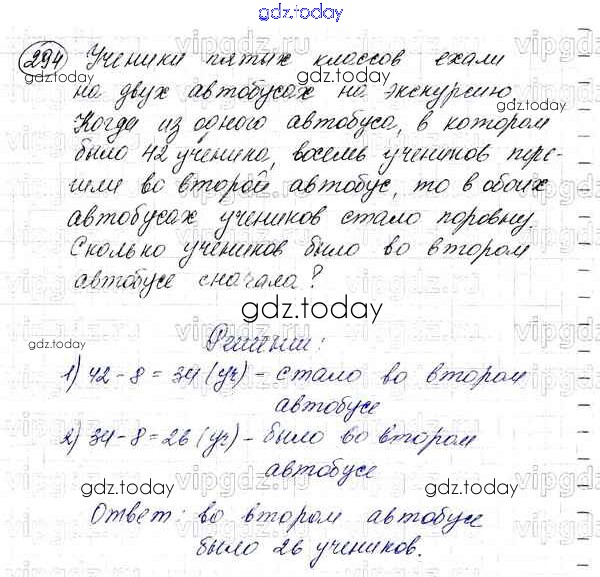 gdz.today
294 Ученики пятых классов ехали
на двух автобусах на экскурсию.
Когда из одного автобуса, в котором
было 42 ученика, восемь учеников пере-
шли во второй автобус, то в обоих
автобусах учеников стало поровну.
Сколько учеников было во втором
автобусе сначала?
gdz.today
Решение:
1) 42 - 8 = 34 (уч) - стало во втором
автобусе
2) 34 - 8 = 26 (уч) - было во втором
автобусе
Ответ: во втором автобусе
было 26 учеников.